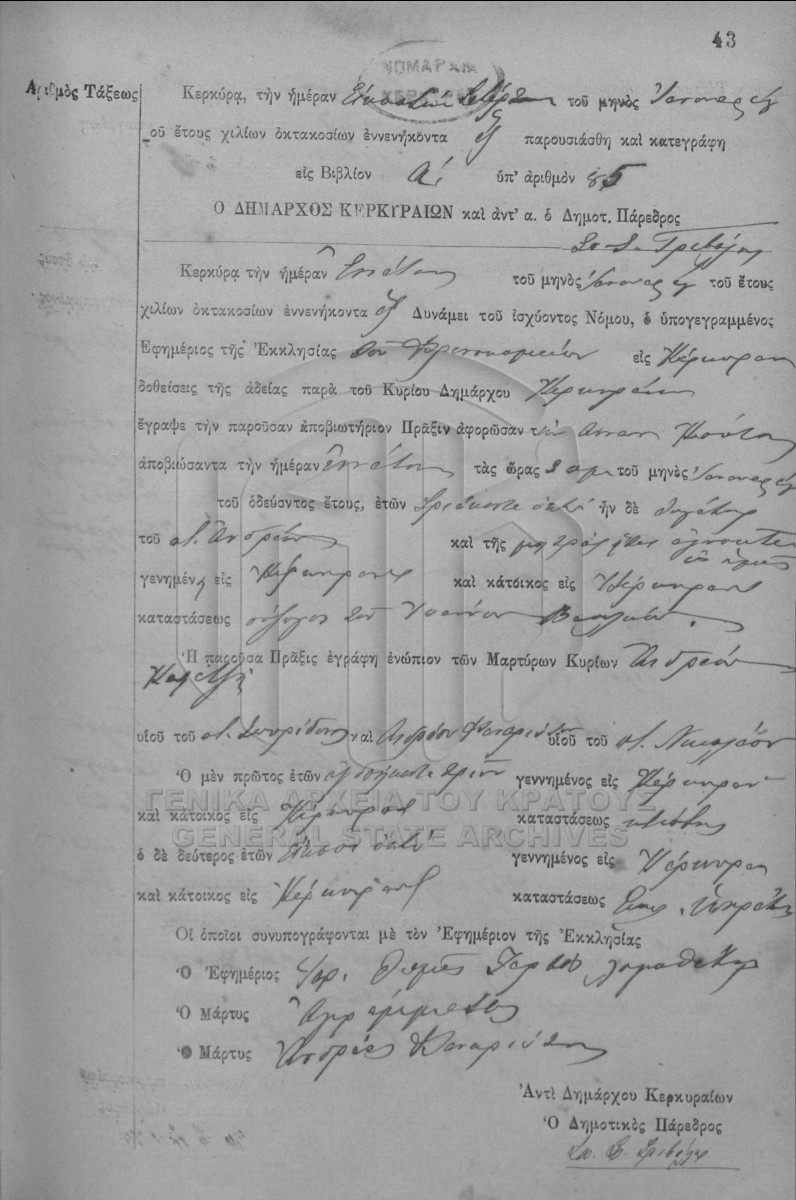 43
ΝΟΜΑΡΧΙΑ
ΚΕΡΚΥΡΑΣ
Ἀριθμὸς Τάξεως
Κερκύρᾳ, τὴν ἡμέραν Εἰκοστὴν τοῦ μηνὸς Ἰανουαρίου
τοῦ ἔτους χιλίων ὀκτακοσίων ἐννενήκοντα ἓξ παρουσιάσθη καὶ κατεγράφη
εἰς Βιβλίον Α΄. ὑπ' ἀριθμὸν 85
Ο ΔΗΜΑΡΧΟΣ ΚΕΡΚΥΡΑΙΩΝ καὶ ἀντ' α. ὁ Δημοτ. Πάρεδρος
Κερκύρᾳ τὴν ἡμέραν Ἐννάτην τοῦ μηνὸς Ἰανουαρίου τοῦ ἔτους
χιλίων ὀκτακοσίων ἐννενήκοντα ἓξ Δυνάμει τοῦ ἰσχύοντος Νόμου, ὁ ὑπογεγραμμένος
Ἐφημέριος τῆς Ἐκκλησίας τοῦ εἰς Κέρκυραν
δοθείσης τῆς ἀδείας παρὰ τοῦ Κυρίου Δημάρχου Κερκυραίων
ἔγραψε τὴν παροῦσαν ἀποβιωτήριον Πρᾶξιν ἀφορῶσαν τὴν Ἄνναν
ἀποβιώσαντα τὴν ἡμέραν ἐννάτην τὰς ὥρας 2 π.μ. τοῦ μηνὸς Ἰανουαρίου
τοῦ ὁδεύσαντος ἔτους, ἐτῶν τριάκοντα ὀκτὼ ἦν δὲ θυγάτηρ
τοῦ π. Ἀνδρέου καὶ τῆς μητρὸς
γενημένη εἰς Κέρκυραν καὶ κάτοικος εἰς Κέρκυραν
καταστάσεως σύζυγος τοῦ Ἰωάννου
Ἡ παροῦσα Πρᾶξις ἐγράφη ἐνώπιον τῶν Μαρτύρων Κυρίων Ἀνδρέου
υἱοῦ τοῦ π. Σπυρίδωνος καὶ Ἀνδρέου υἱοῦ τοῦ π. Νικολάου
Ὁ μὲν πρῶτος ἐτῶν ἑβδομήκοντα τριῶν γεννημένος εἰς Κέρκυραν
καὶ κάτοικος εἰς Κέρκυραν καταστάσεως κτίστης
ὁ δὲ δεύτερος ἐτῶν εἴκοσι ὀκτὼ γεννημένος εἰς Κέρκυραν
καὶ κάτοικος εἰς Κέρκυραν καταστάσεως ὑπηρέτης
Οἱ ὁποῖοι συνυπογράφονται μὲ τὸν Ἐφημέριον τῆς Ἐκκλησίας
Ὁ Ἐφημέριος
Ὁ Μάρτυς Ἀγράμματος
Ὁ Μάρτυς Ἀνδρέας
Ἀντὶ Δημάρχου Κερκυραίων
Ὁ Δημοτικὸς Πάρεδρος
ΓΕΝΙΚΑ ΑΡΧΕΙΑ ΤΟΥ ΚΡΑΤΟΥΣ
GENERAL STATE ARCHIVES